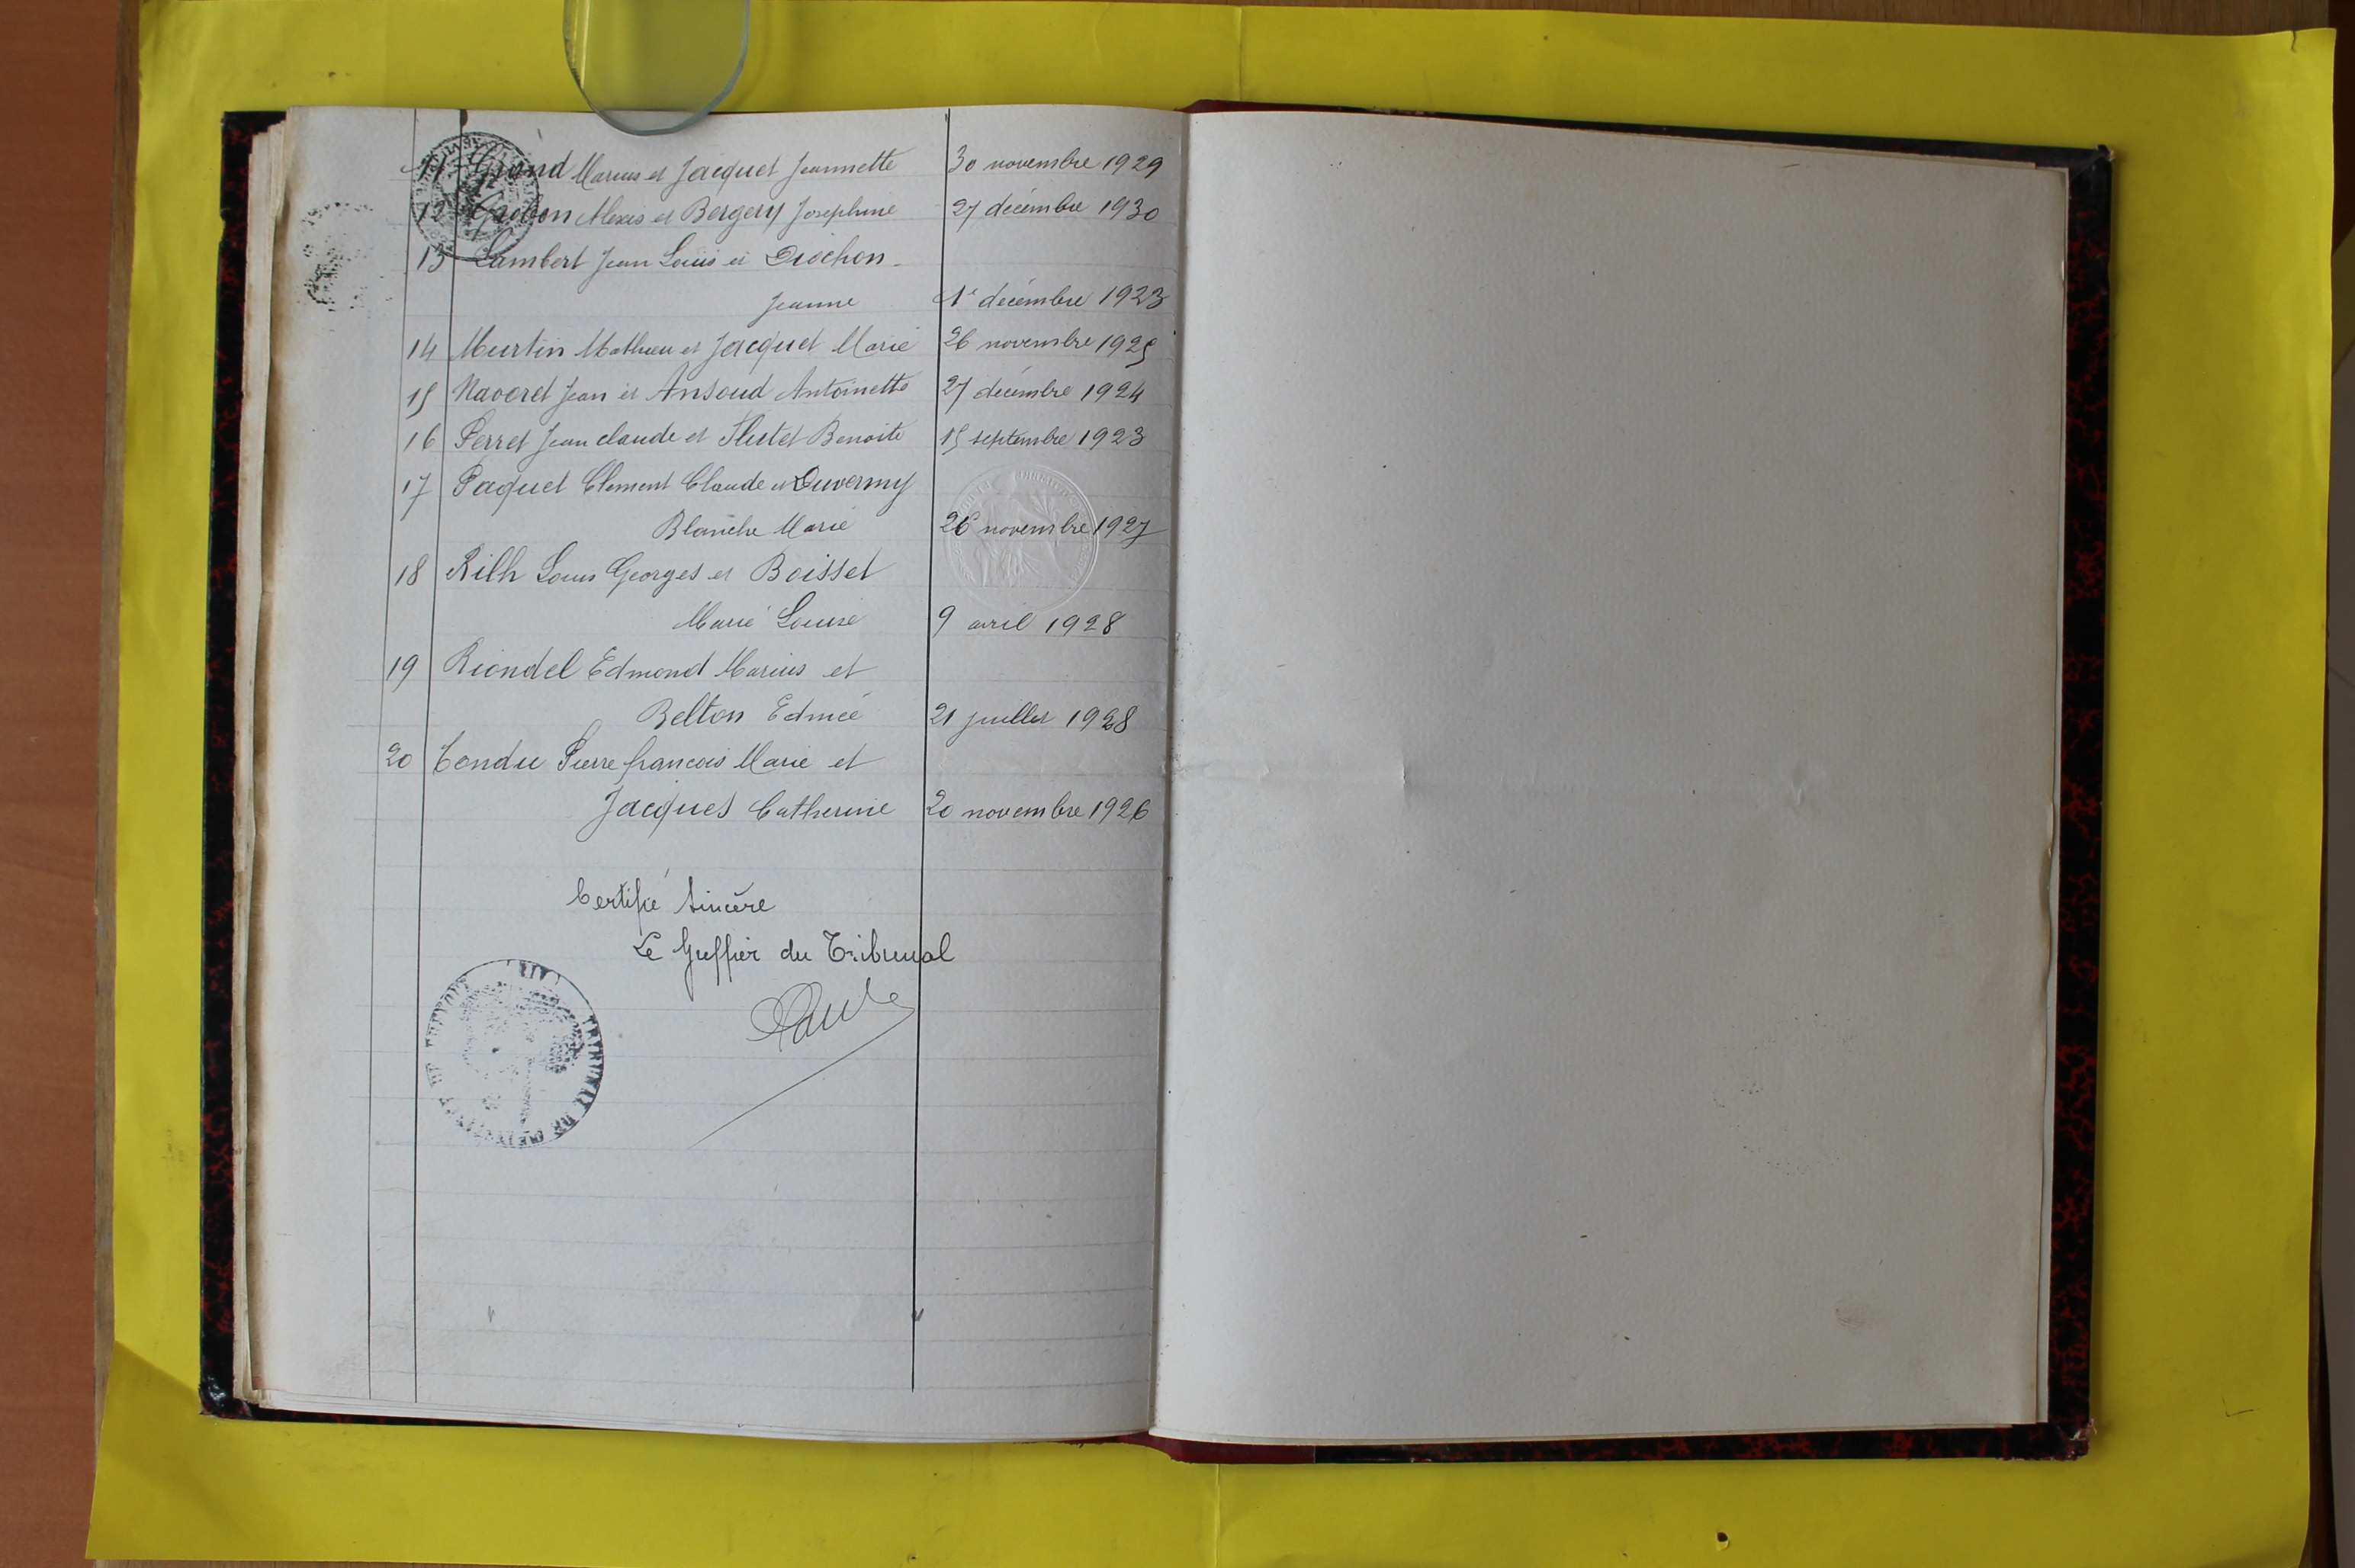 11 Grand Marius et Jacquet Jeannette 30 novembre 1929
12 Grobon Alexis et Bergery Josephine 27 décembre 1930
13 Lambert Jean Louis et Diochon
Jeanne 1e décembre 1923
14 Murtin Mathieu et Jacquet Marie 26 novembre 1925
15 Navoret Jean et Ansoud Antoinette 27 décembre 1924
16 Perret Jean claude et Flutet Benoite 15 septembre 1923
17 Paquet Clement Claude et Duvernay
Blanche Marie 26 novembre 1927
18 Rilh Louis Georges et Boisset
Marie Louise 9 avril 1928
19 Riondel Edmond Marius et
Belton Edmée 21 juillet 1928
20 Tondu Pierre francois Marie et
Jacques Catherine 20 novembre 1926
Certifié sincère
Le Greffier du Tribunal
TRIBUNAL DE